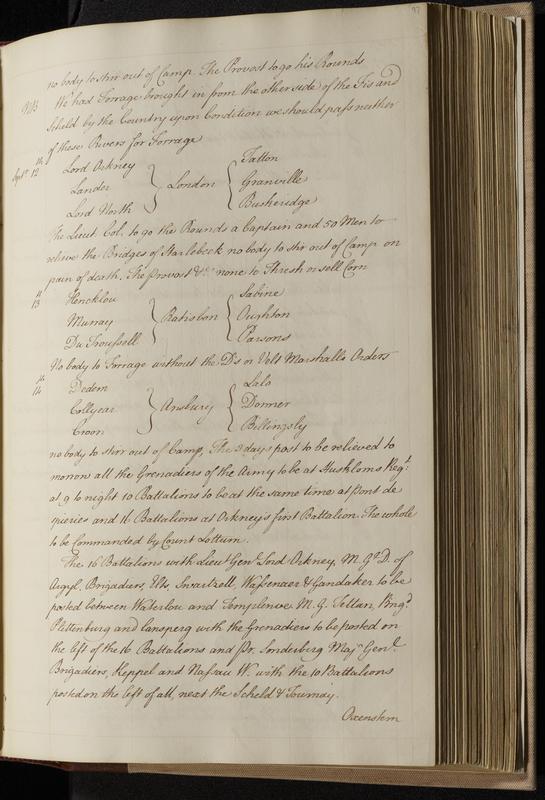 97
no body to stir out of Camp. The Provost to go his Rounds
NB We had Forrage brought in from the other side of the Lis and
Scheld by the Country upon Condition we should pass neither
of these Rivers for Forrage
Septr. 12 Lord Orkney Tatton
Lander London Granville
Lord North Buskeridge
The Lieut. Col. to go the Rounds a Captain and 50 Men to
relieve the Bridges of Harlebeck no body to stir out of Camp on
pain of death. The Provost &c. none to Thresh or sell Corn
13 Hencklou Sabine
Murray Ratisbon Oughton
Du Troussell Parsons
No body to Forrage without the D's or Velt Marshalls Orders
14 Dedem Lalo
Collyear Ansbury Dormer
Croon Billingsly
no body to stirr out of Camp, The 3 days post to be relieved to
morrow all the Grenadiers of the Army to be at Huskloms Regt:
at 9 to night 10 Battalions to be at the same time at pont de
queries and 16 Battalions at Orkney's first Battalion. The whole
to be Commanded by Count Lottum.
The 16 Battalions with Lieut Genl Lord Orkney, M. G. D. of
Argyl, Brigadiers, Elts, Swartzell, Wassenaer & Gandaker to be
posted between Waterlou and Templenve M. G. Tettau, Brigd.
Plettenburg and Lansperg with the Grenadiers to be posted on
the left of the 16 Battalions and Pr. Sonderbirg Majr Genl.
Brigadiers, Keppel and Nassau W. with the 10 Battalions
posted on the left of all, next the Scheld & Tournay.
Oxenstern